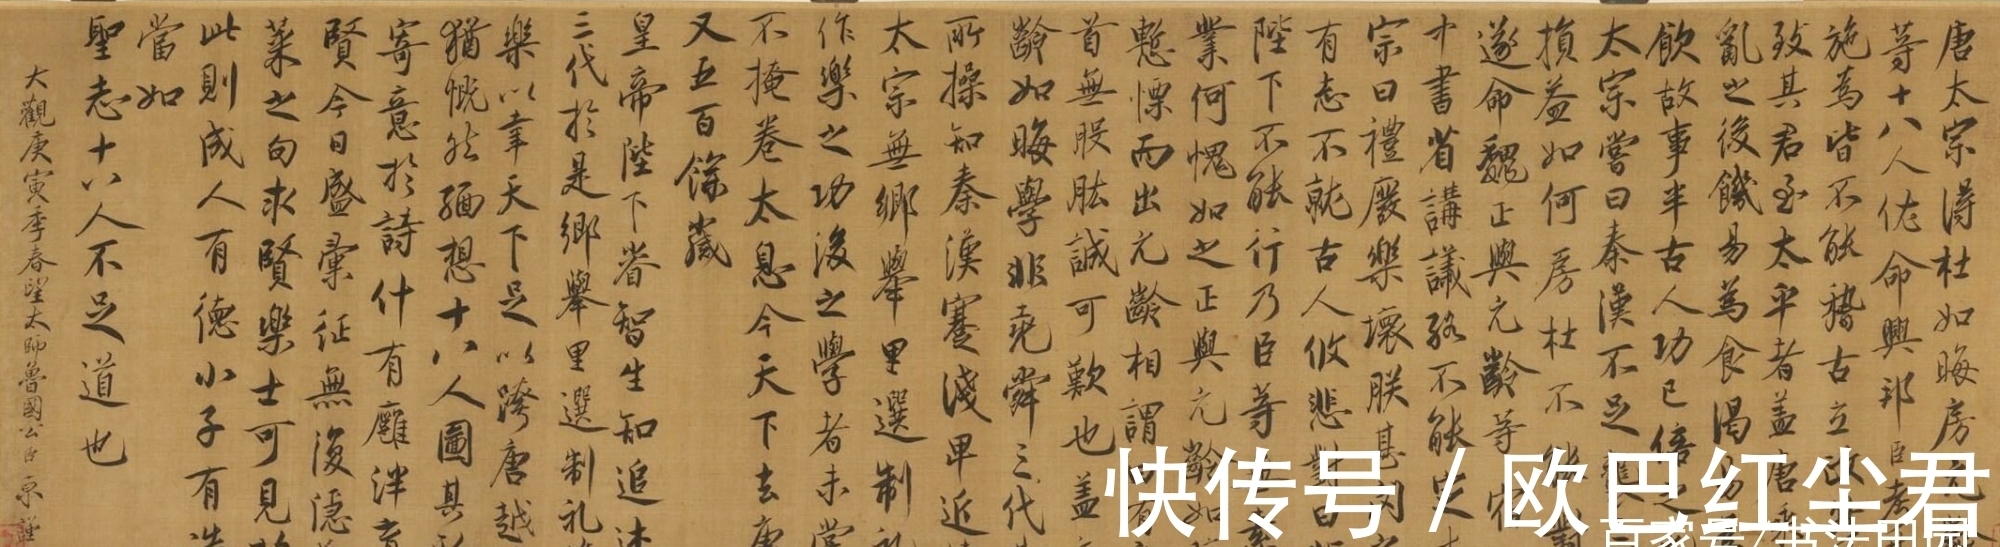 唐太宗得杜如晦房元齡
等十八人佐命興邦臣考
施為皆不能稽古立政
致其君至太平者盖唐
亂之後饑易為食渴易
飲故事半古人功已倍之
太宗嘗曰秦漢不足
損益如何房杜不能對
遂命魏正與元齡等宿
中書省講議終不能定
宗曰禮廢樂壞朕甚閔
有志不就古人攸悲對曰
陛下不能行乃臣等
業何愧如之正與元齡如
慙慄而出元齡相謂
首無股肱誠可歎也盖
齡如晦學非堯舜三代
所操知秦漢蹇淺卑近
太宗無鄉舉里選制礼
作樂之功後之學者未嘗
不掩卷太息今天下去唐
又五百餘歲
皇帝陛下睿智生知追述
三代於是鄉舉里選制礼
樂以幸天下足以跨唐越
猶慨然緬想十八人圖其
寄意於詩什有廱泮育
賢今日盛彙征無復隱
菜之句求賢樂士可見
此則成人有德小子有造
當如
聖志十八人不足道也
大觀庚寅季春望太師魯國公臣京謹
快传号 / 欧巴红尘君
百家号/书法甲园